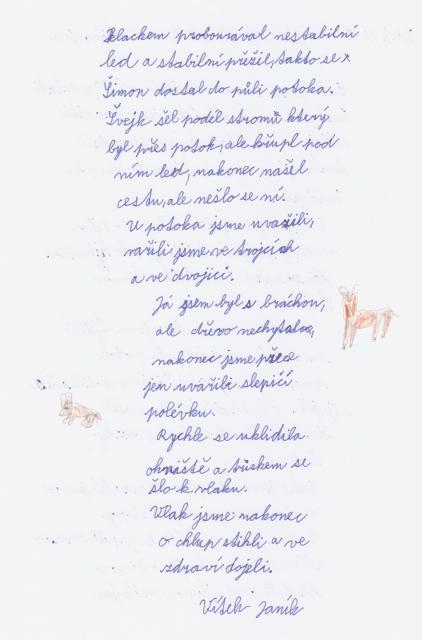 Klackem probourával nestabilní
led a stabilní přežil, takto se
Šimon dostal do půli potoka.
Švejk šel podél stromů který
byl přes potok, ale křupl pod
ním led, nakonec našel
cestu, ale nešlo se ní.
U potoka jsme uvařili,
vařili jsme ve trojcích
a ve dvojici.
Já jsem byl s bráchou,
ale dřevo nechytalo,
nakonec jsme přece
jen uvařili slepičí
polévku.
Rychle se uklidila
ohniště a tryskem se
šlo k vlaku.
Vlak jsme nakonec
o chlup stihli a ve
zdraví dojeli.
Vítek Janík